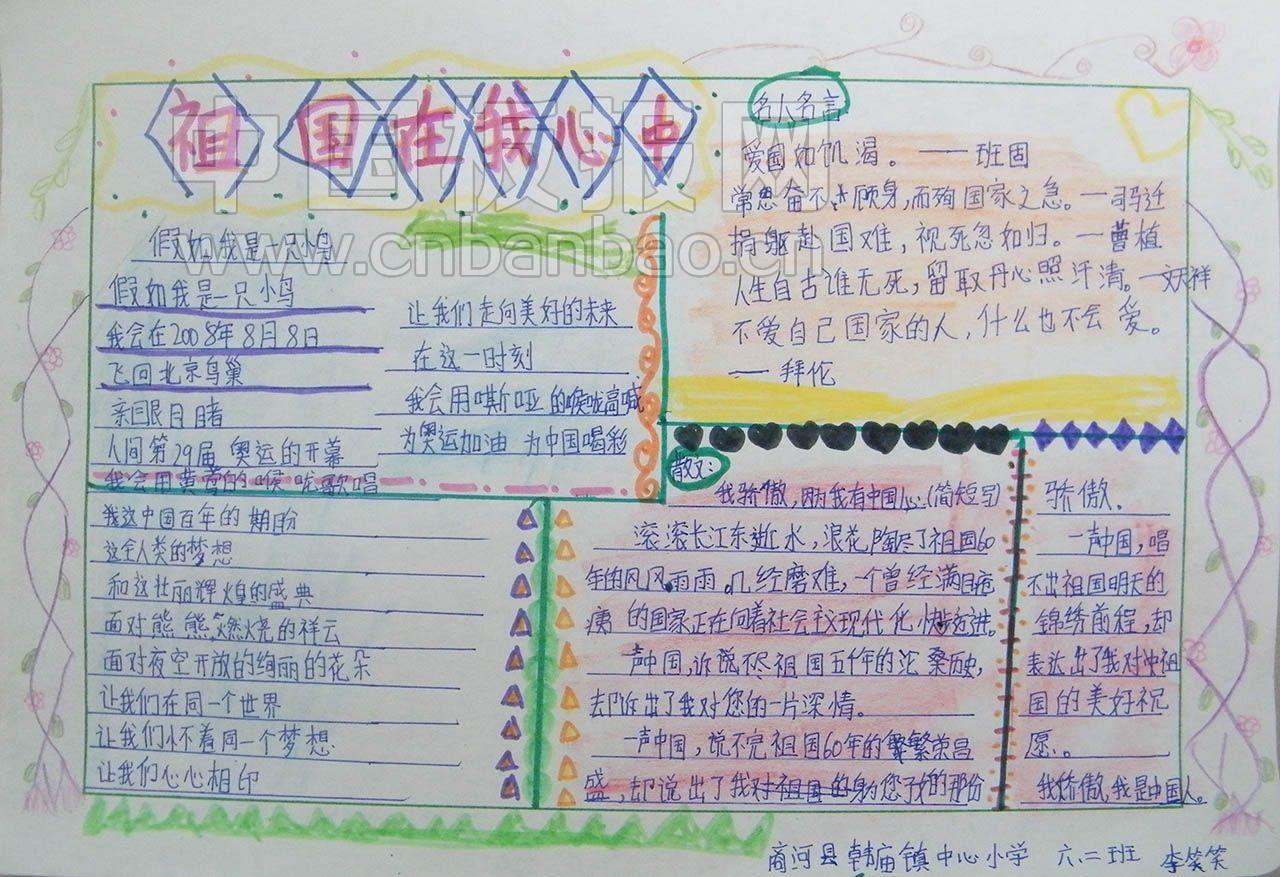 祖国在我心中
中国板报网
www.cnbanbao.cn
假如我是一只小鸟
假如我是一只小鸟
我会在2008年8月8日
飞向北京鸟巢
亲目睹
人间第29届 奥运的开幕
我会用黄莺的喉咙歌唱
我这中国百年的期盼
这全人类的梦想
和这壮丽辉煌的盛典
面对熊熊燃烧的祥云
面对夜空开放的绚丽的花朵
让我们在同一个世界
让我们怀着同一个梦想
让我们心心相印
让我们走向美好的未来
在这一时刻
我会用嘶哑的喉咙高喊
为奥运加油 为中国喝彩
名人名言
爱国如饥渴。——班固
常思奋不顾身,而殉国家之急。—司马迁
捐躯赴国难,视死忽如归。—曹植
人生自古谁无死,留取丹心照汗清。—文天祥
不爱自己国家的人,什么也不会爱。
——拜伦
散文:
我骄傲,因为我有中国心(简短写)
滚滚长江东逝水,浪花陶尽了祖国60
年的风风雨雨。几经磨难,一个曾经满目疮
痍的国家正在向着社会主义现代化小快迈进。
一声中国,诉说不尽祖国五千年的沧桑历史,
却诉出了我对您的一片深情。
一声中国,说不完祖国60年的繁荣昌
盛,却说出了我对祖国的身为您子的那份
骄傲.
一声中国,唱
不出祖国明天的
锦绣前程,却
表达出了我对中祖
国的美好祝
愿。
我骄傲,我是中国人。
商河县韩庙镇中心小学 六.二班 李笑笑